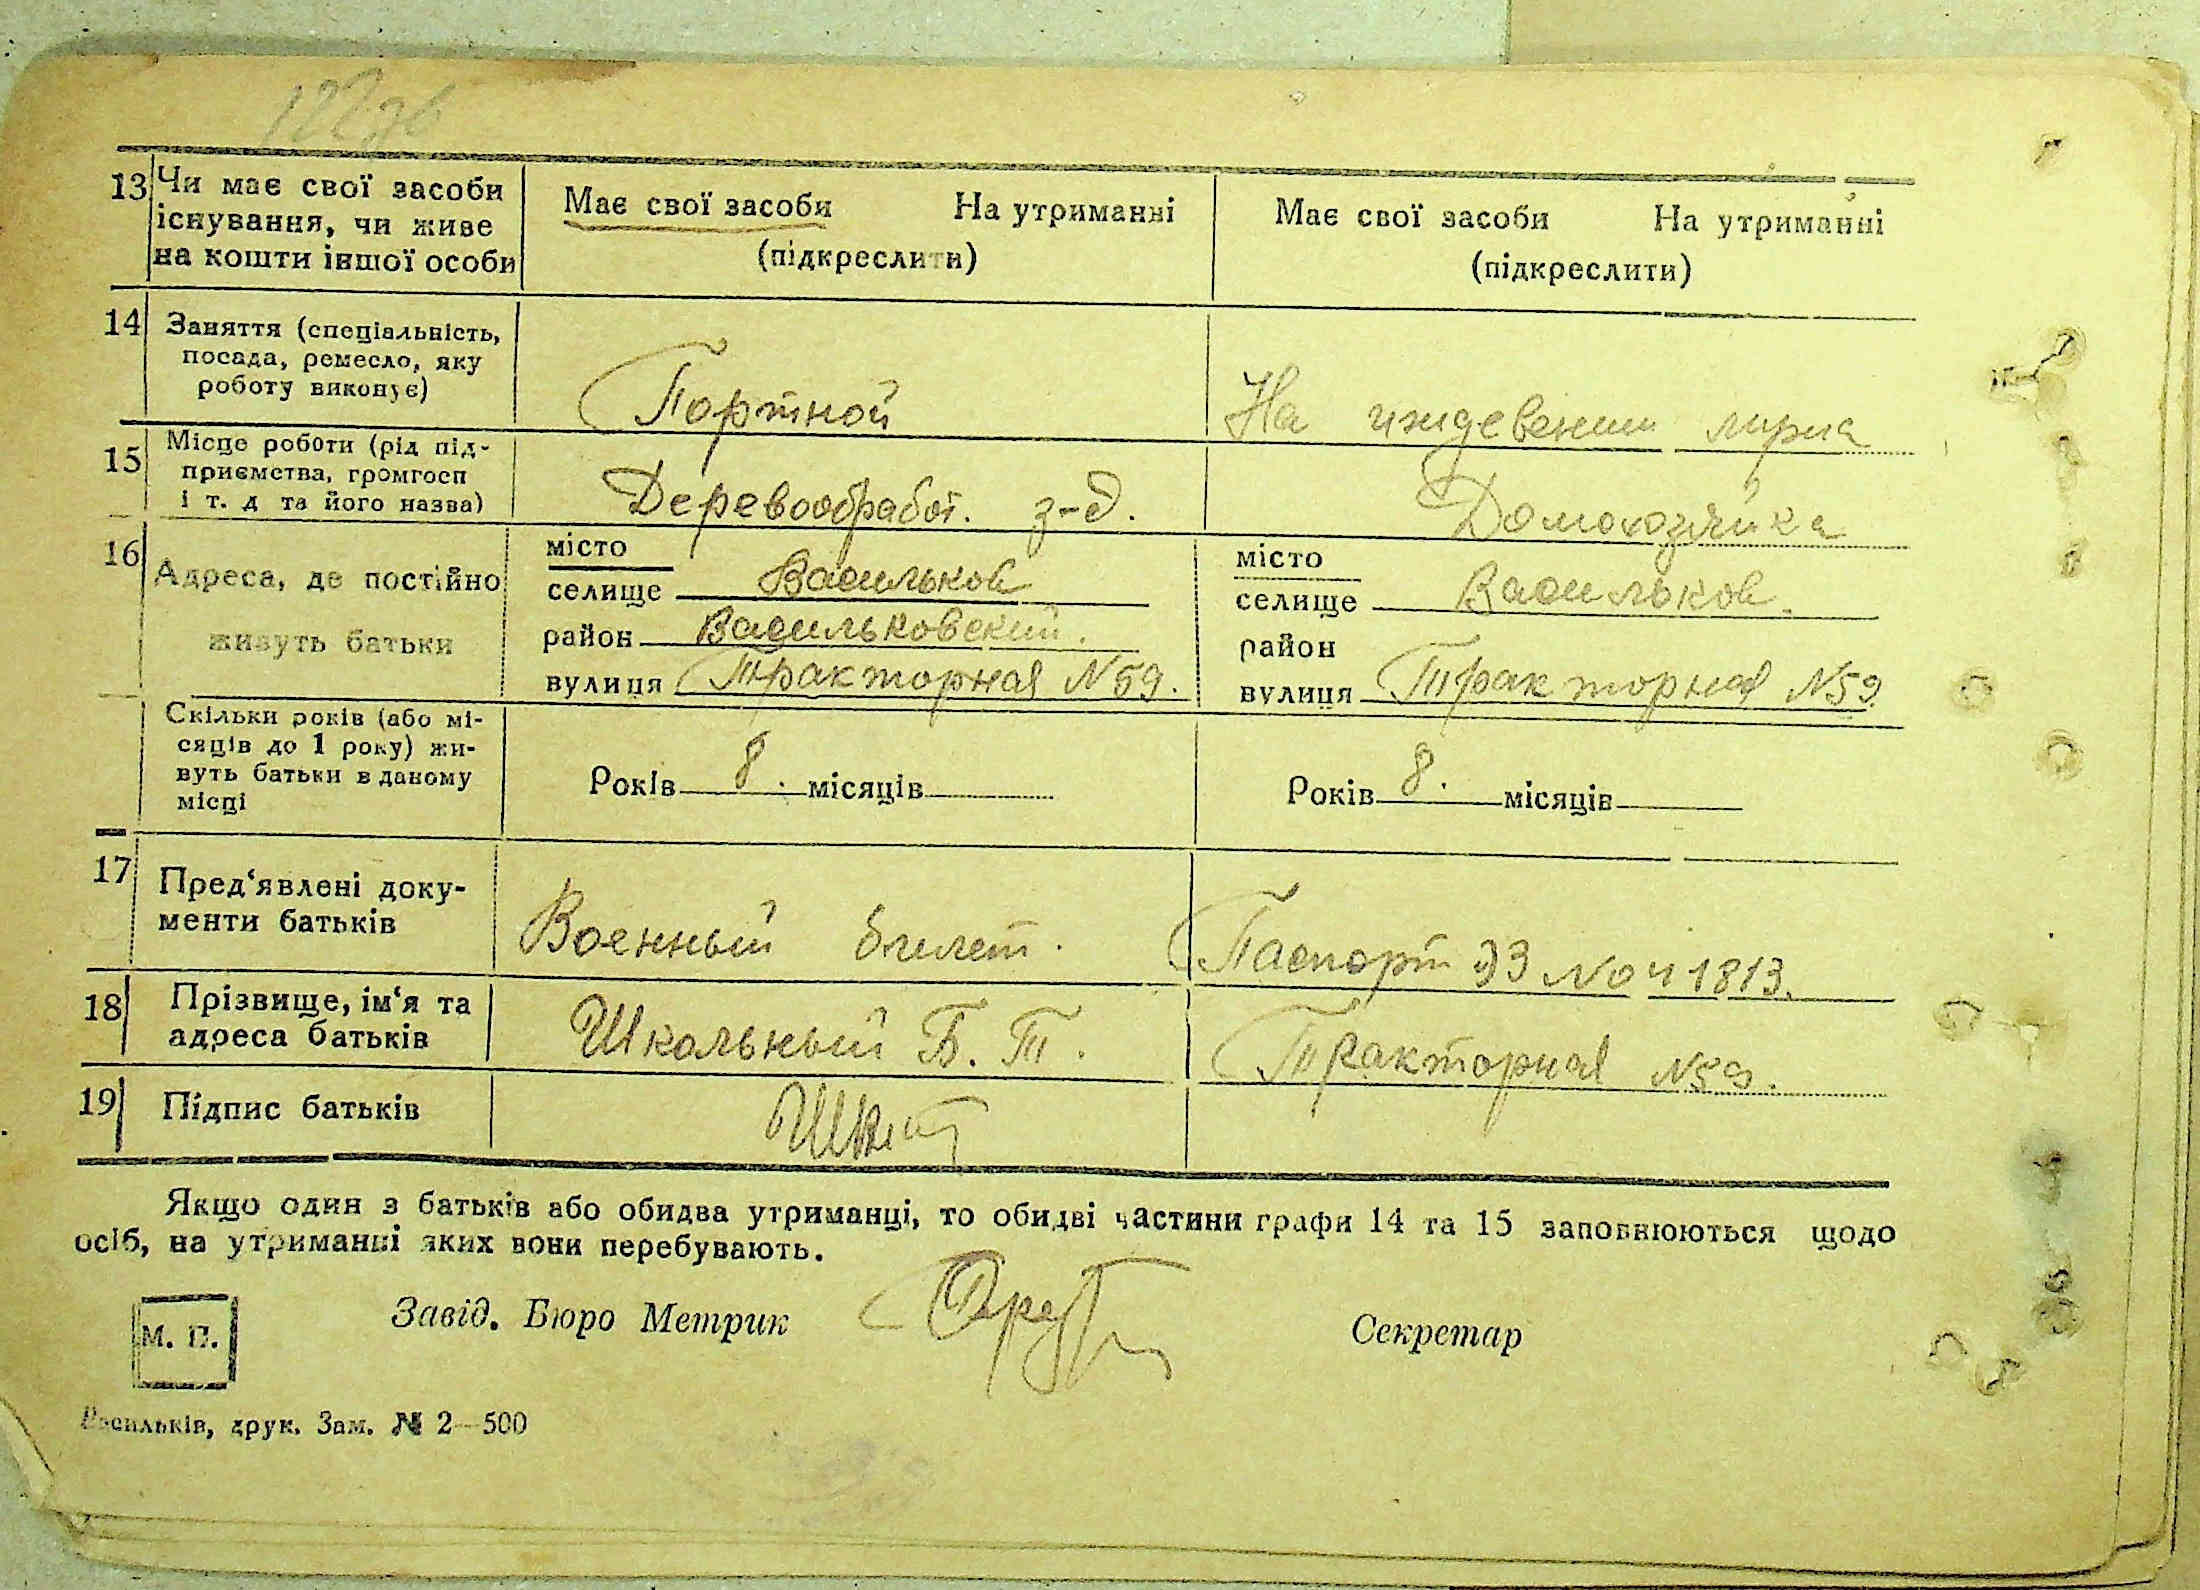 13 Чи має свої засоби існування, чи живе на кошти іншої особи
Має свої засоби На утриманні
(підкреслити)
Має свої засоби На утриманні
(підкреслити)
14 Заняття (спеціальність,
посада, ремесло, яку
роботу виконує)
Портной
На иждевении мужа
15 Місце роботи (рід під-
приємства, громгосп
і т. д та його назва)
Деревообработ. з-д.
Домохозяйка
16 Адреса, де постійно
живуть батьки
місто
селище Васильков
район Васильковский.
вулиця Тракторная N 59.
місто
селище Васильков.
район
вулиця Тракторная N59.
Скільки років (або мі-
сяців до 1 року) жи-
вуть батьки в даному
місці
Років 8. місяців
Років 8. місяців
17 Пред‘явлені доку-
менти батьків
Военный билет.
Паспорт ЭЗ No 41813.
18 Прізвище, ім‘я та
адреса батьків
Школьный Б. Т.
Тракторная N59.
19 Підпис батьків
Якщо один з батьків або обидва утриманці, то обидві частини графи 14 та 15 заповнюються щодо
осіб, на утриманні яких вони перебувають.
М. П.
Завід. Бюро Метрик
Секретар
Васильків, друк. Зам. № 2—500